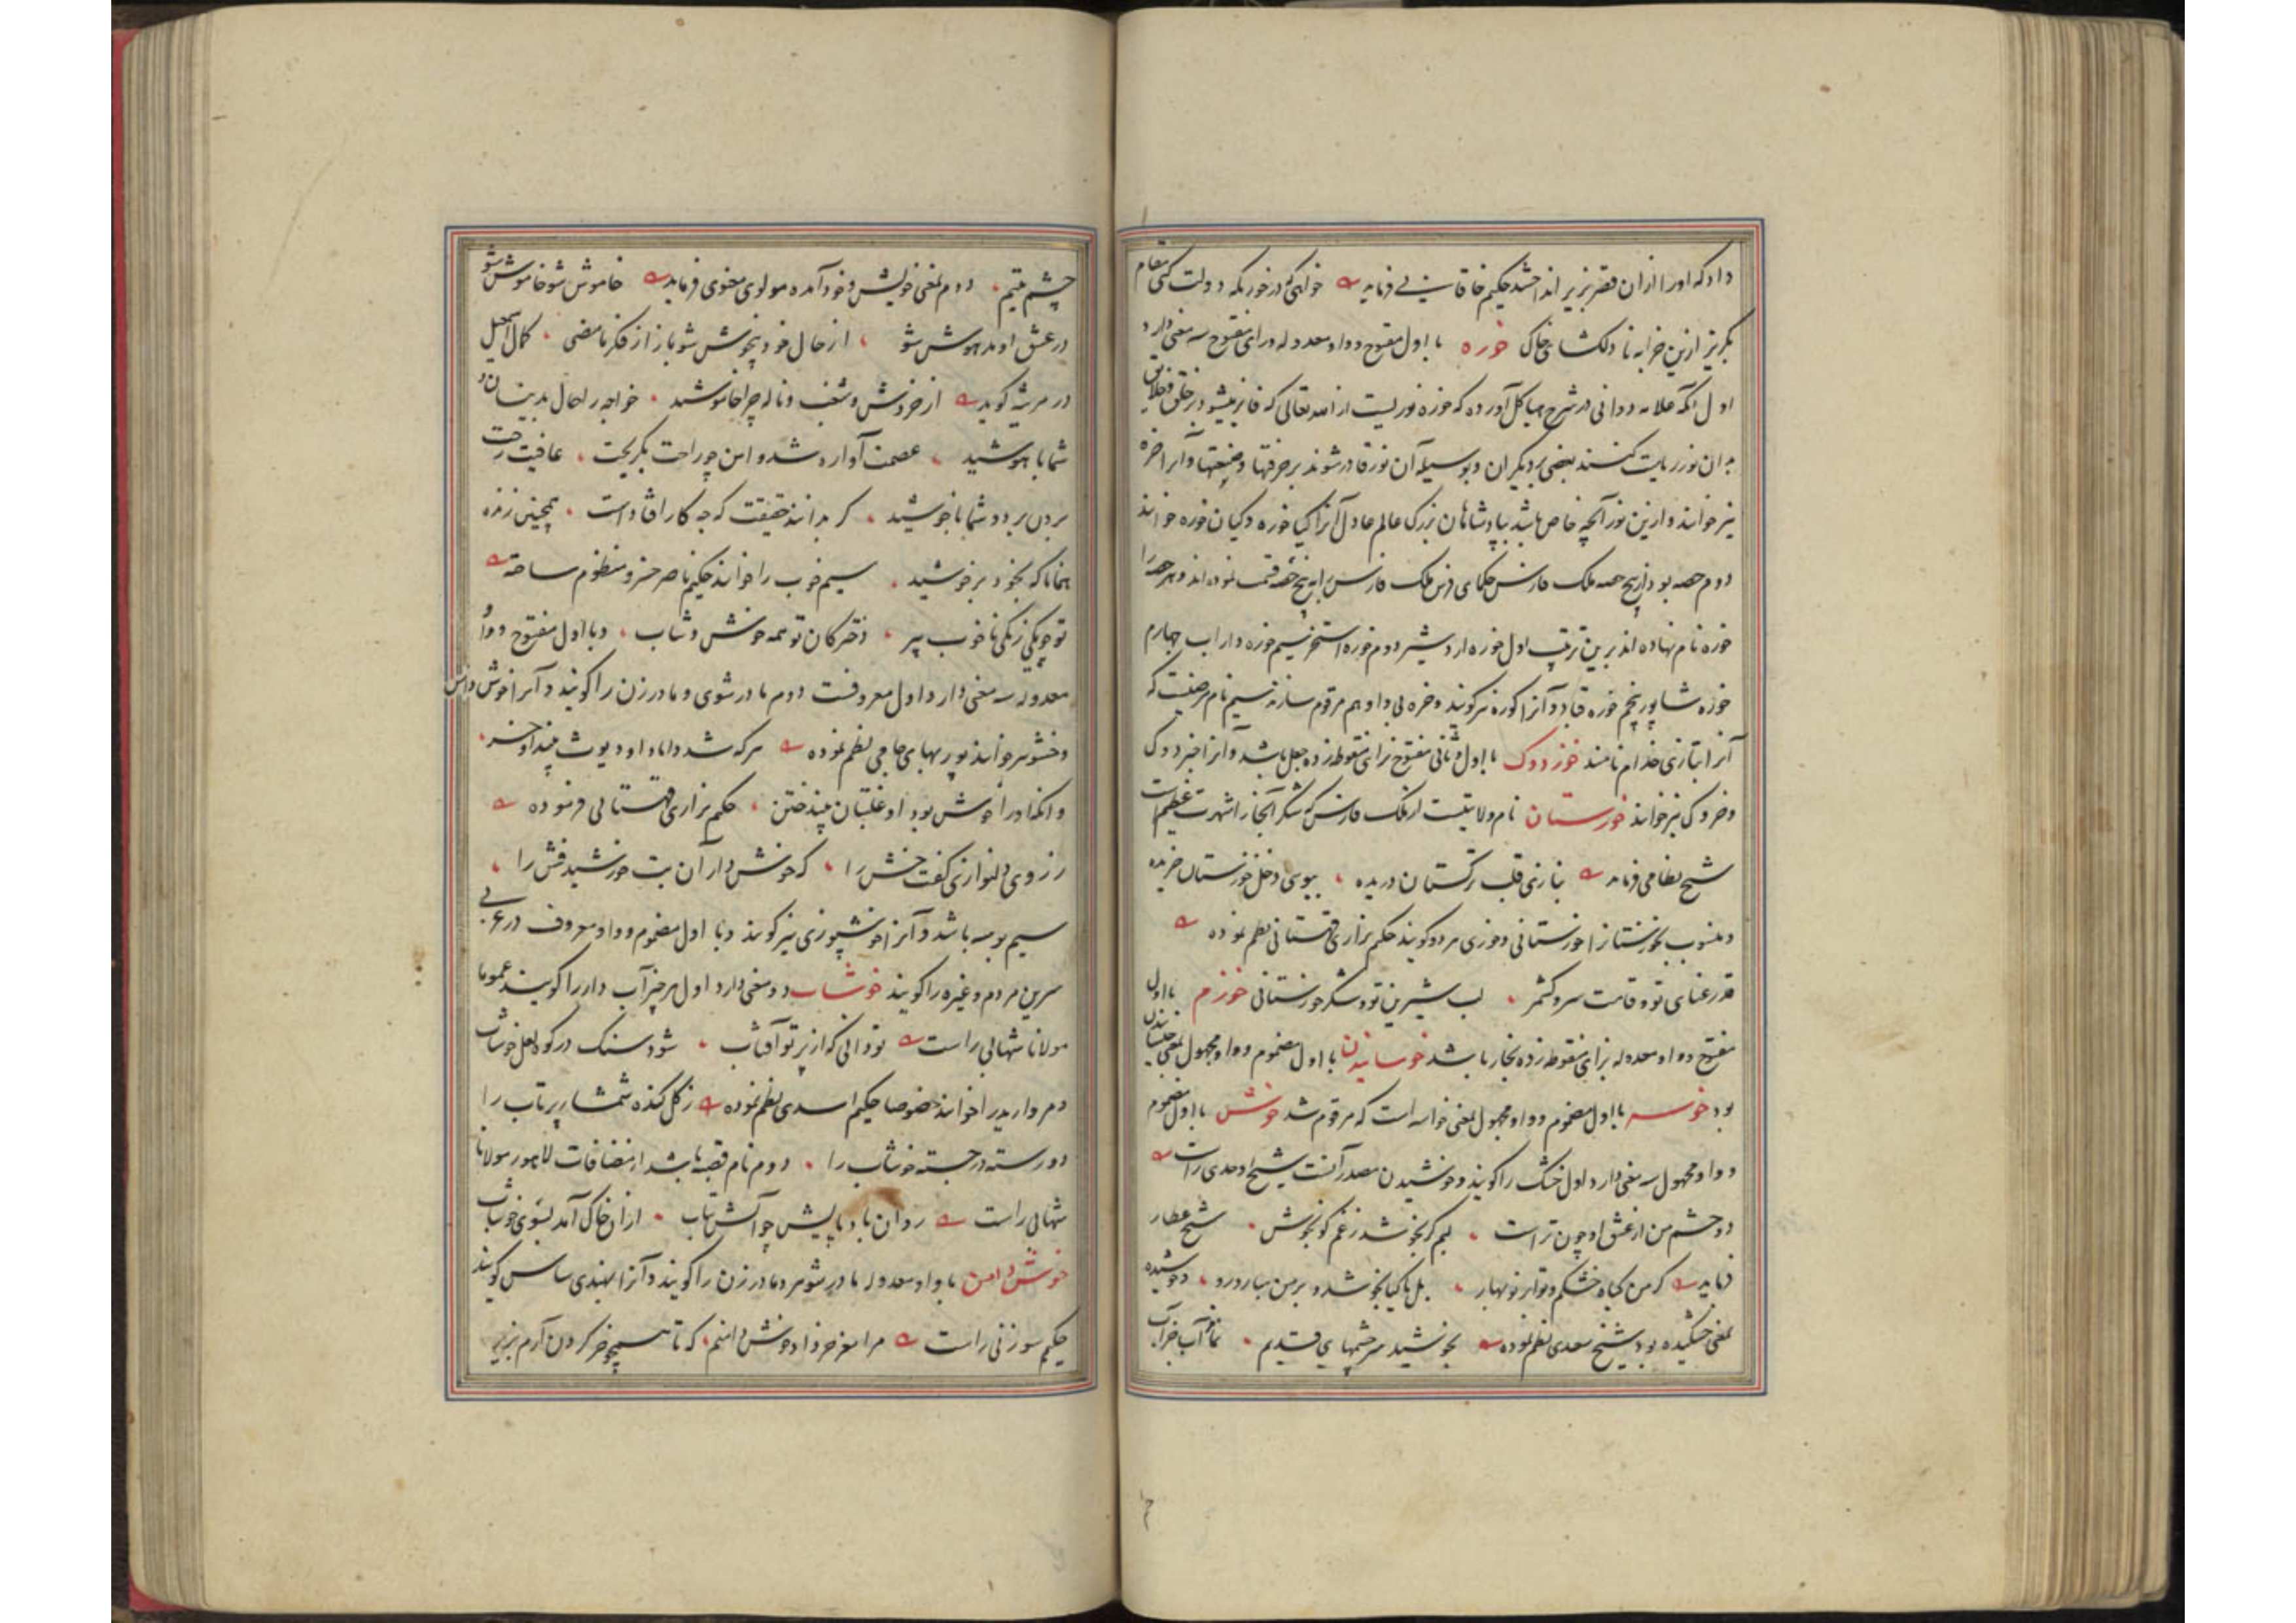 داد که او را ازان قصر بزیر انداختند حکیم خاقانی فرماید خواهی که در خورنگه دولت کنی مقام
بگریز ازین خرابه نادلکشای خاک خوره با اول مفتوح و واو معدوله و رای مفتوح سه معنی دارد
اول آنکه علامه دوانی در شرح هیاکل آورده که خوره نوریست از الله تعالی که فایز میشود بر خلق و خلایق
بدان نور ریاست کنند بعضی بر دیگران و بوسیله آن نور قادر شوند بر حرفتها و صنعتها و آنرا خره
نیز خوانند و ازین نور آنچه خاص باشد بپادشاهان بزرک عالم عادل آنرا کیا خوره و کیان خوره خوانند
دوم حصه بود از پنج حصه ملک فارس حکمای فرس ملک فارس را به پنج حصه قسمت نموده اند و هر حصه را
خوره نام نهاده اند برین ترتیب اول خوره اردشیر دوم خوره استخر سیم خوره داراب چهارم
خوره شاپور پنجم خوره قباد و آنرا کوره نیز کویند و خره بی واو هم مرقوم سازند سیم نام مرضیست که
آنرا بتازی جذام نامند خوزدوک با اول و ثانی مفتوح بزای منقوطه زده جعل باشد و آنرا خبزدوک
و خزدوک نیز خوانند خوزستان نام ولایتیست از ملک فارس که شکر آنجا را شهرت عظیم است
شیخ نظامی فرماید بنازی قلب ترکستان دریده ببوسی دخل خوزستان خریده
و منسوب بخوزستان را خوزستانی و خوزی هر دو کویند حکیم نزاری قهستانی نظم نموده
قد رعنای تو و قامت سرو کشمر لب شیرین تو و شکر خوزستانی خوزم با اول
مفتوح و واو معدوله بزای منقوطه زده بخار باشد خوسانیدن با اول مضموم و واو مجهول بمعنی خیسانیدن
بود خوسه با اول مضموم و واو مجهول بمعنی خواسه است که مرقوم شد خوش با اول مضموم
و واو مجهول سه معنی دارد اول خشک را کویند و خوشیدن مصدر آنست شیخ اوحدی راست
دو چشم من از عشق او چون تر است لبم کر بخوشد ز غم کو بخوش شیخ عطار
فرماید کر من کیاه خشکم و تو ابر نوبهار بل تا کیا بخوشد و بر من مبار و رو و خوشیده
بمعنی خشکیده بود شیخ سعدی نظم نموده بخوشید سرچشمهای قدیم نماند آب جز آب
چشم یتیم دوم بمعنی خویش و خود آمده مولوی معنوی فرماید خاموش شو خاموش شو
در عشق او مدهوش شو از حال خود بیخوش شو باز از فکر نامضی کمال اسمعیل
در مرثیه کوید از خروش و شغب و ناله چرا خاموشید خواجه را حال بدینسان و
شما با هوشید عصمت آواره شد و امن چو راحت بکریخت عافیت رخت
بردن بر بود شما با خوشید کر بدانند حقیقت که چه کار افتاده است همچنین زنده
همانا که بخود برخوشید سیم خوب را خوانند حکیم ناصر خسرو منظوم ساخته
تو چو یکی زنکی ناخوب پیر دخترکان تو همه خوش و شاب و با اول مفتوح و واو
معدوله سه معنی دارد اول معروفست دوم مادر شوی و مادر زن را کویند و آنرا خوش دامن
و خشو نیز خوانند پور بهای جامی نظم نموده هر که شد داماد او دیوث بیند او خسر
وانکه او را خوش بود او غلتبان بیند ختن حکیم نزاری قهستانی فرموده
ز روی دلنوازی کفت خوش را که خوش دار آن بت خورشیدفش را
سیم بوسه باشد و آنرا خوشپوزی نیز کویند و با اول مضموم و واو معروف در عربی
سرین مردم و غیره را کویند خوشاب دو معنی دارد اول هر چیز آب دار را کویند عموما
مولانا شهابی راست تو دانی که از پرتو آفتاب شود سنک در کوه لعل خوشاب
و مروارید را خوانند خصوصا حکیم اسدی نظم نموده ز کل کنده شمشاد پرتاب را
دو رسته درجسته خوشاب را دوم نام قصبه باشد از مضافات لاهور مولانا
شهابی راست روان باد پایش چو آتش بتاب ازان خاک آمد بسوی خوشاب
خوش دامن با واو معدوله مادر شوهر و مادر زن را کویند و آنرا بهندی ساس کویند
حکیم سوزنی راست مرا مغز خر داد خوش دامنم که تا همچو خر کردن آرم بزیر